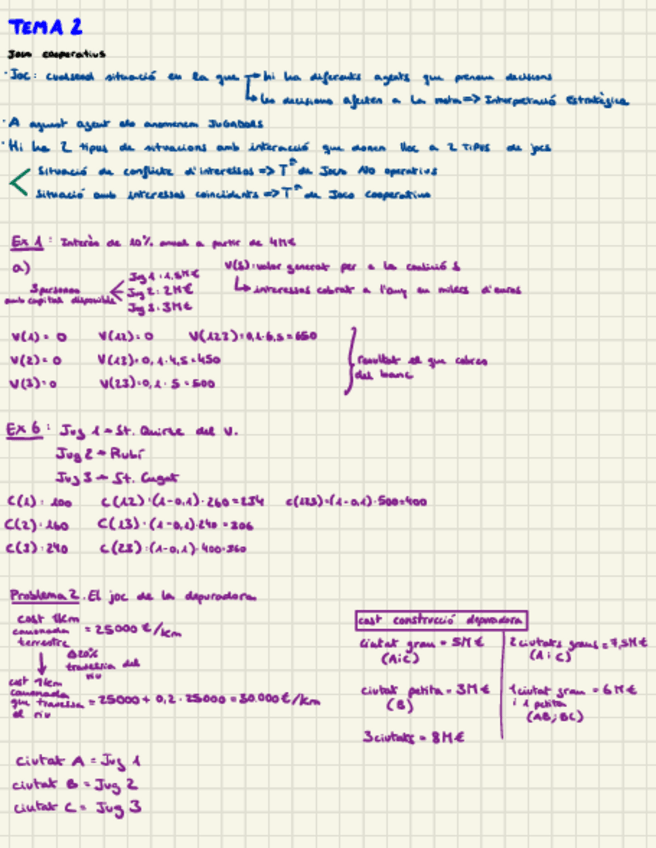 TEMA 2
Jocs cooperatius
· Joc: qualsevol situació en la que → hi ha diferents agents que prenen decisions
↳ les decisions afecten a la resta => Interacció Estratègica
· A aquest agent els anomenem JUGADORS
· Hi ha 2 tipus de situacions amb interacció que donen lloc a 2 TIPUS de jocs
Situació de conflicte d'interessos => Tª de Jocs NO operatius
Situació amb interessos coincidents => Tª de Jocs Cooperatius
Ex 1: Interès de 10% anual a partir de 4M€
a)
3 persones amb capital disponible
Jug 1: 1,5M€
Jug 2: 2M€
Jug 3: 3M€
V(s): valor generat per a la coalició s
↳ interessos cobrats a l'any en milers d'euros
V(1) = 0 V(12) = 0 V(123) = 0,1 · 6,5 = 650
V(2) = 0 V(13) = 0,1 · 4,5 = 450
V(3) = 0 V(23) = 0,1 · 5 = 500
resultat el que cobres
del banc
Ex 6: Jug 1 → St. Quirze del V.
Jug 2 → Rubí
Jug 3 → St. Cugat
C(1) = 100 C(12) = (1-0,1) · 260 = 234 C(123) = (1-0,1) · 500 = 400
C(2) = 160 C(13) = (1-0,1) · 340 = 306
C(3) = 240 C(23) = (1-0,1) · 400 = 360
Problema 2. El joc de la depuradora
cost 1km
canonada
terrestre
= 25000 €/km
↓ Δ20%
travessia del
riu
cost 1km
canonada
que travessa
el riu
= 25000 + 0,2 · 25000 = 30.000 €/km
cost construcció depuradora
ciutat gran = 5M€
(A i C)
ciutat petita = 3M€
(B)
3 ciutats = 8M€
2 ciutats grans = 7,5M€
(A i C)
1 ciutat gran = 6M€
i 1 petita
(AB; BC)
ciutat A = Jug 1
ciutat B = Jug 2
ciutat C = Jug 3